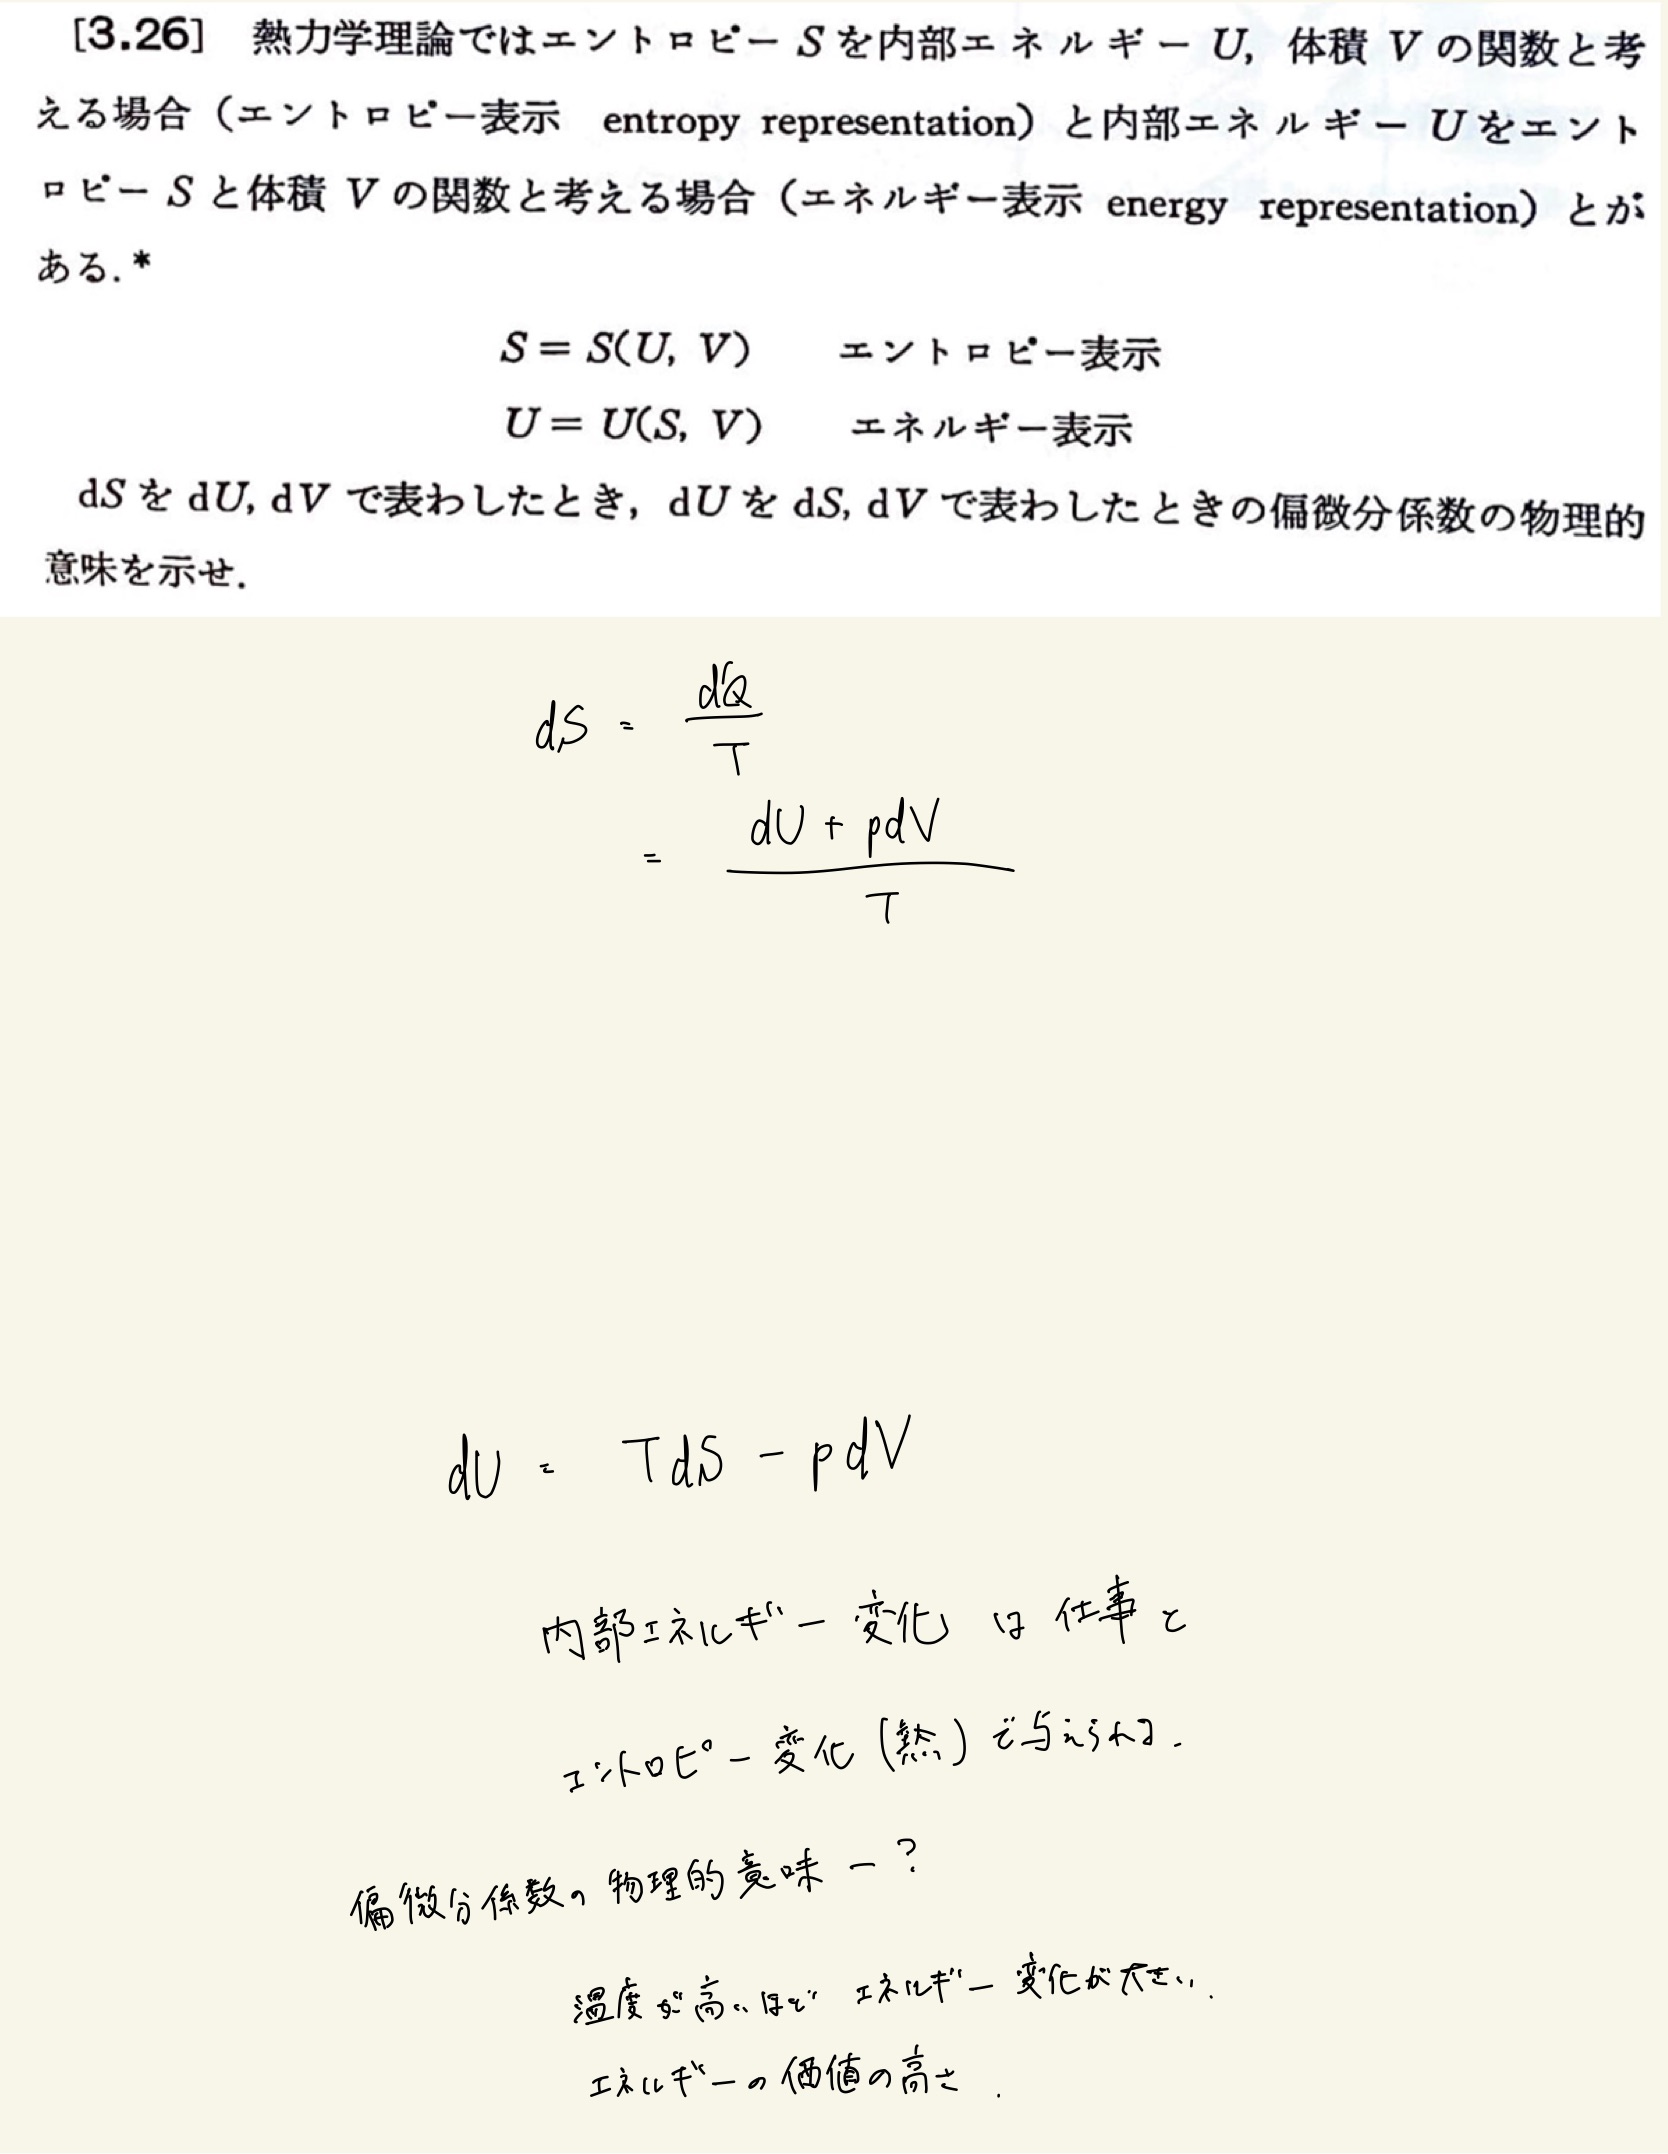 [3.26] 熱力学理論ではエントロピー S を内部エネルギー U, 体積 V の関数と考
える場合（エントロピー表示 entropy representation）と内部エネルギー U をエント
ロピー S と体積 V の関数と考える場合（エネルギー表示 energy representation）とが
ある.*
S = S(U, V) エントロピー表示
U = U(S, V) エネルギー表示
dS を dU, dV で表わしたとき, dU を dS, dV で表わしたときの偏微分係数の物理的
意味を示せ.
dS = d'Q / T
= (dU + pdV) / T
dU = TdS - pdV
内部エネルギー変化は仕事と
エントロピー変化(熱)で与えられる.
偏微分係数の物理的意味ー?
温度が高いほどエネルギー変化が大きい.
エネルギーの価値の高さ.